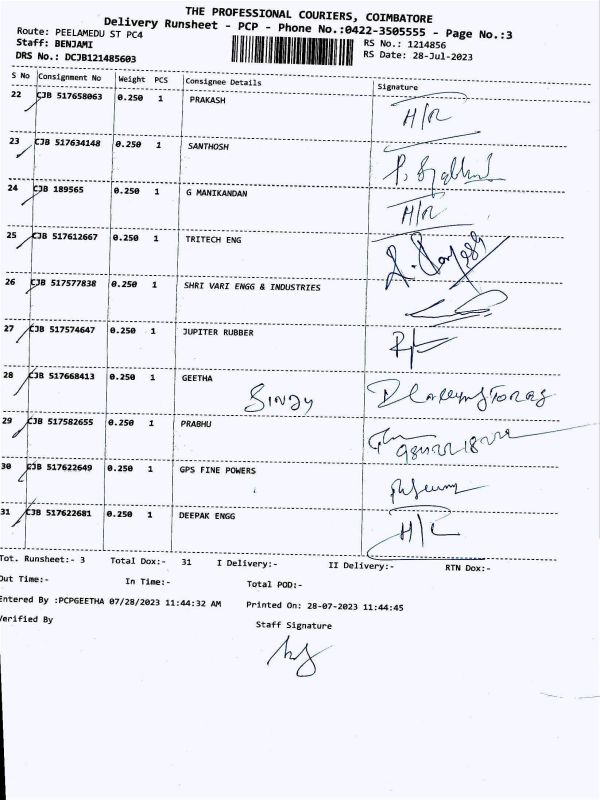 THE PROFESSIONAL COURIERS, COIMBATORE
Delivery Runsheet - PCP - Phone No.:0422-3505555 - Page No.:3
Route: PEELAMEDU ST PC4
RS No.: 1214856
Staff: BENJAMI
RS Date: 28-Jul-2023
DRS No.: DCJB121485603
S No Consignment No Weight PCS Consignee Details Signature
22 CJB 517658063 0.250 1 PRAKASH H/R
23 CJB 517634148 0.250 1 SANTHOSH
24 CJB 189565 0.250 1 G MANIKANDAN H/R
25 CJB 517612667 0.250 1 TRITECH ENG
26 CJB 517577838 0.250 1 SHRI VARI ENGG & INDUSTRIES
27 CJB 517574647 0.250 1 JUPITER RUBBER
28 CJB 517668413 0.250 1 GEETHA
29 CJB 517582655 0.250 1 PRABHU
30 CJB 517622649 0.250 1 GPS FINE POWERS
31 CJB 517622681 0.250 1 DEEPAK ENGG
Tot. Runsheet:- 3 Total Dox:- 31 I Delivery:- II Delivery:- RTN Dox:-
Out Time:- In Time:- Total POD:-
Entered By :PCPGEETHA 07/28/2023 11:44:32 AM Printed On: 28-07-2023 11:44:45
Verified By Staff Signature